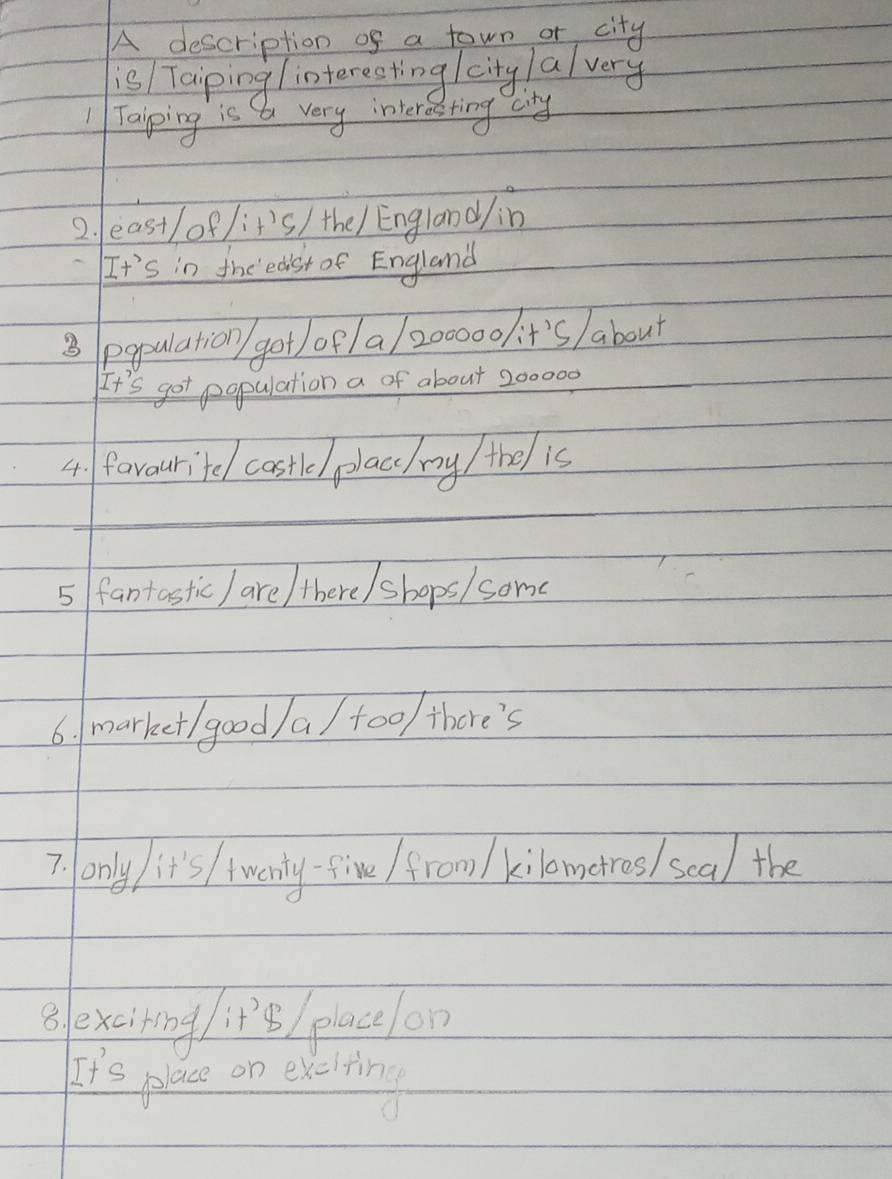 A description of a town or city
is/Taiping/interesting/city/a/very
1 Taiping is a very interesting city
2. east/of/it's/the/England/in
It's in the east of England
3 population/got/of/a/200000/it's/about
It's got population a of about 200000
4. favaurite/castle/place/my/the/is
5 fantastic/are/there/shops/some
6. market/good/a/too/there's
7. only/it's/twenty-five/from/kilometres/sea/the
8. exciting/it's/place/on
It's place on exciting